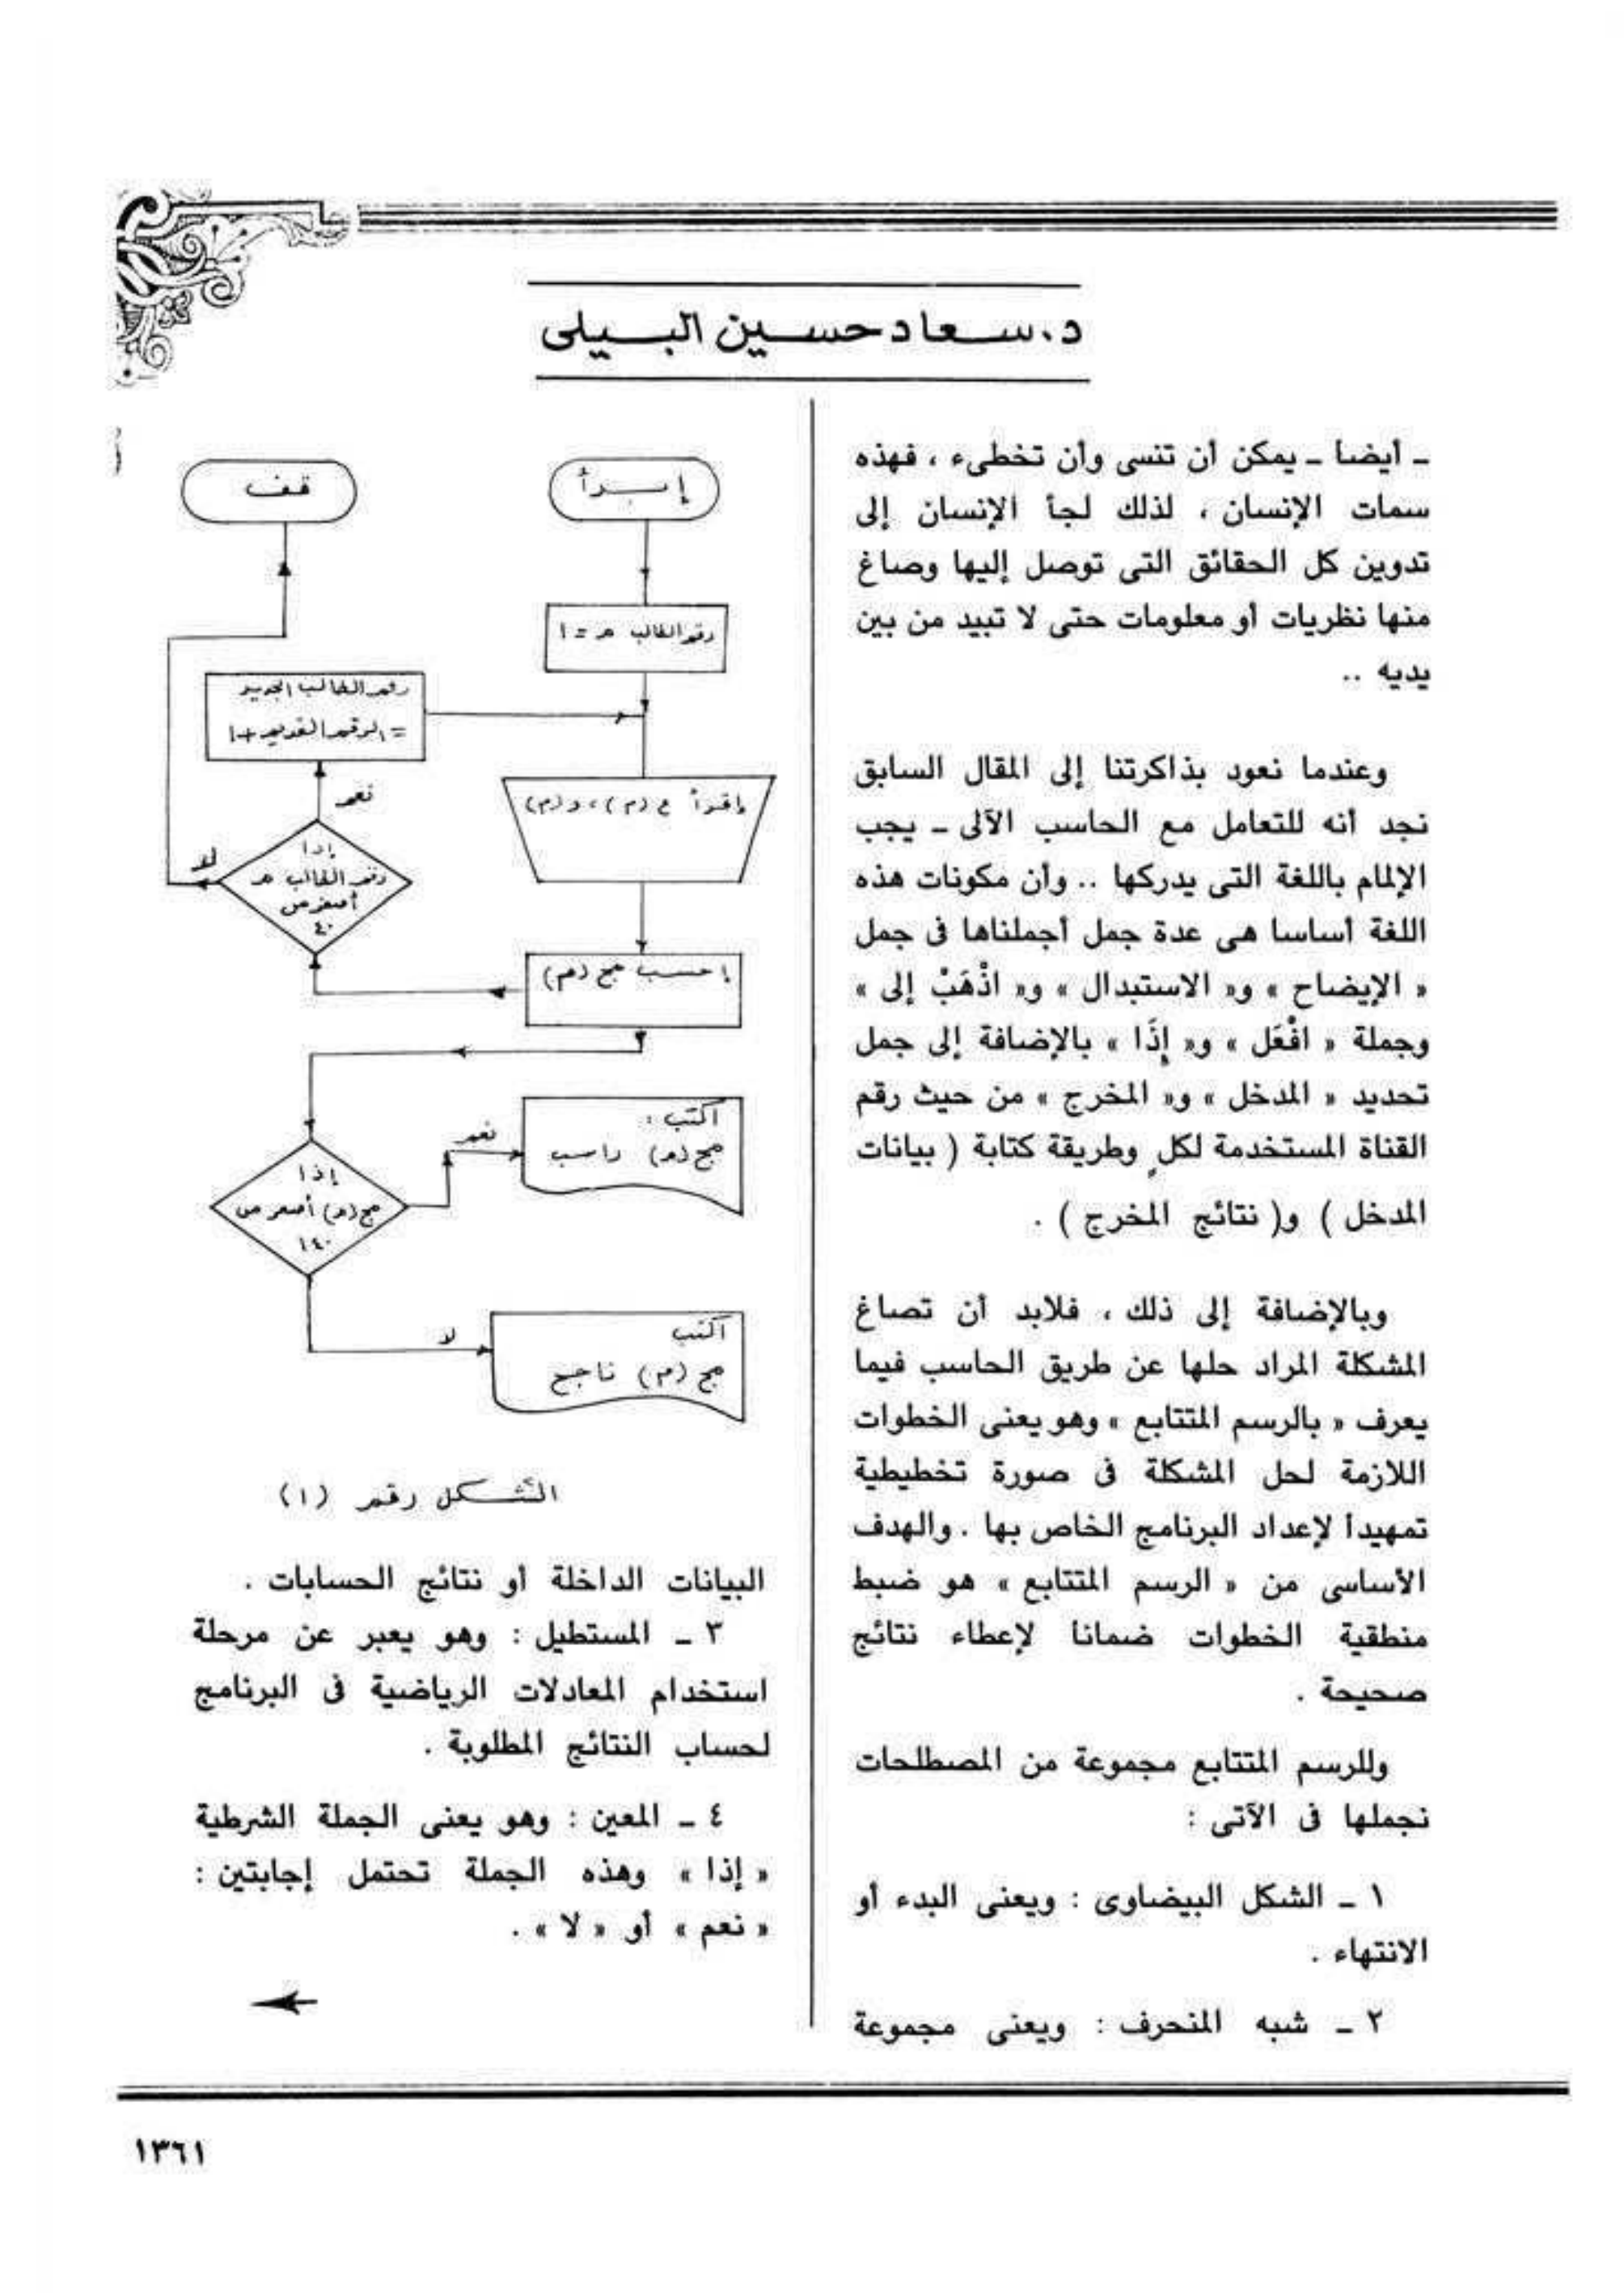 د. سعاد حسين البيلى
ـ أيضا ـ يمكن أن تنسى وأن تخطىء ، فهذه
سمات الإنسان ، لذلك لجأ الإنسان إلى
تدوين كل الحقائق التى توصل إليها وصاغ
منها نظريات أو معلومات حتى لا تبيد من بين
يديه ..
وعندما نعود بذاكرتنا إلى المقال السابق
نجد أنه للتعامل مع الحاسب الآلى ـ يجب
الإلمام باللغة التى يدركها .. وأن مكونات هذه
اللغة أساسا هى عدة جمل أجملناها فى جمل
« الإيضاح » و« الاستبدال » و« اذْهَبْ إلى »
وجملة « افْعَل » و« إِذَا » بالإضافة إلى جمل
تحديد « المدخل » و« المخرج » من حيث رقم
القناة المستخدمة لكلٍ وطريقة كتابة ( بيانات
المدخل ) و( نتائج المخرج ) .
وبالإضافة إلى ذلك ، فلابد أن تصاغ
المشكلة المراد حلها عن طريق الحاسب فيما
يعرف « بالرسم المتتابع » وهو يعنى الخطوات
اللازمة لحل المشكلة فى صورة تخطيطية
تمهيداً لإعداد البرنامج الخاص بها . والهدف
الأساسى من « الرسم المتتابع » هو ضبط
منطقية الخطوات ضمانا لإعطاء نتائج
صحيحة .
وللرسم المتتابع مجموعة من المصطلحات
نجملها فى الآتى :
١ ـ الشكل البيضاوى : ويعنى البدء أو
الانتهاء .
٢ ـ شبه المنحرف : ويعنى مجموعة
إبدأ
قف
رقم الطالب م = ١
رقم الطالب الجديد
= الرقم القديم + ١
إقرأ ع (م) ، د (م)
نعم
إذا
رقم الطالب م
أصغر من
٤٠
لا
إحسب مج (م)
اكتب :
مج (م) راسب
نعم
إذا
مج (م) أصغر من
١٤٠
لا
اكتب
مج (م) ناجح
الشكل رقم (١)
البيانات الداخلة أو نتائج الحسابات .
٣ ـ المستطيل : وهو يعبر عن مرحلة
استخدام المعادلات الرياضية فى البرنامج
لحساب النتائج المطلوبة .
٤ ـ المعين : وهو يعنى الجملة الشرطية
« إذا » وهذه الجملة تحتمل إجابتين :
« نعم » أو « لا » .
١٣٦١